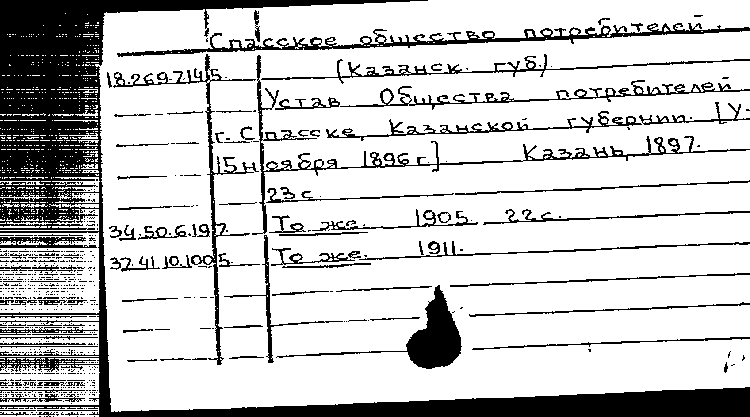 Спасское общество потребителей.
18.269.714/5. (Казанск. губ.)
Устав Общества потребителей
г. Спасске, Казанской губернии. [У-
15 ноября 1896 г.] Казань, 1897.
23 с.
34.50.6.197. То же. 1905. 22 с.
37.41.10.100/5 То же. 1911.